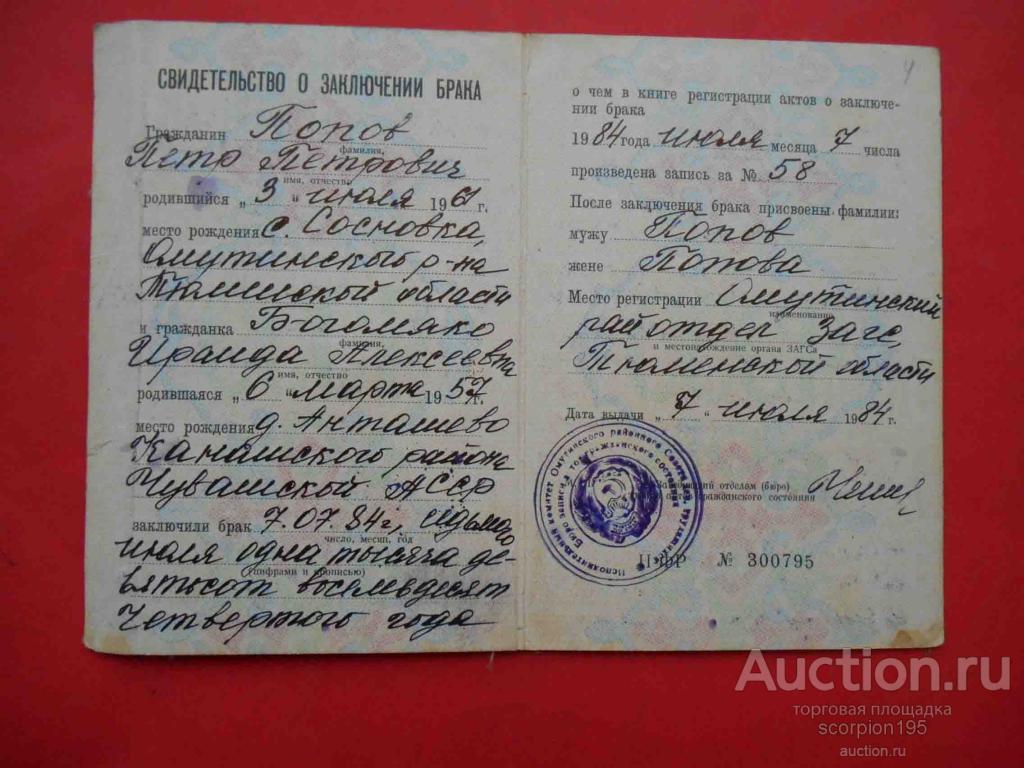 СВИДЕТЕЛЬСТВО О ЗАКЛЮЧЕНИИ БРАКА
Гражданин Попов
фамилия,
Пётр Петрович
имя, отчество
родившийся „ 3 “ июля 1961 г.
место рождения с. Сосновка,
Омутинский р-на
Тюменской области
и гражданка Богомяко
фамилия,
Ираида Алексеевна
имя, отчество
родившаяся „ 6 “ марта 1957 г.
место рождения д. Анташево
Канашского района
Чувашской АССР
заключили брак 7.07.84г, седьмого
число, месяц, год
июля одна тысяча де-
(цифрами и прописью)
вятьсот восемьдесят
четвертого года
4
о чем в книге регистрации актов о заключе-
нии брака
1984 года июля месяца 7 числа
произведена запись за № 58
После заключения брака присвоены фамилии:
мужу Попов
жене Попова
Место регистрации Омутинский
наименование
райотдел Загс,
и местонахождение органа ЗАГСа
Тюменской области
Дата выдачи „ 7 “ июля 1984 г.
отделом (бюро)
гражданского состояния
Исполнительный комитет Омутинского районного Совета
Бюро записи гражданского состояния
№ 300795
Auction.ru
торговая площадка
scorpion195
auction.ru